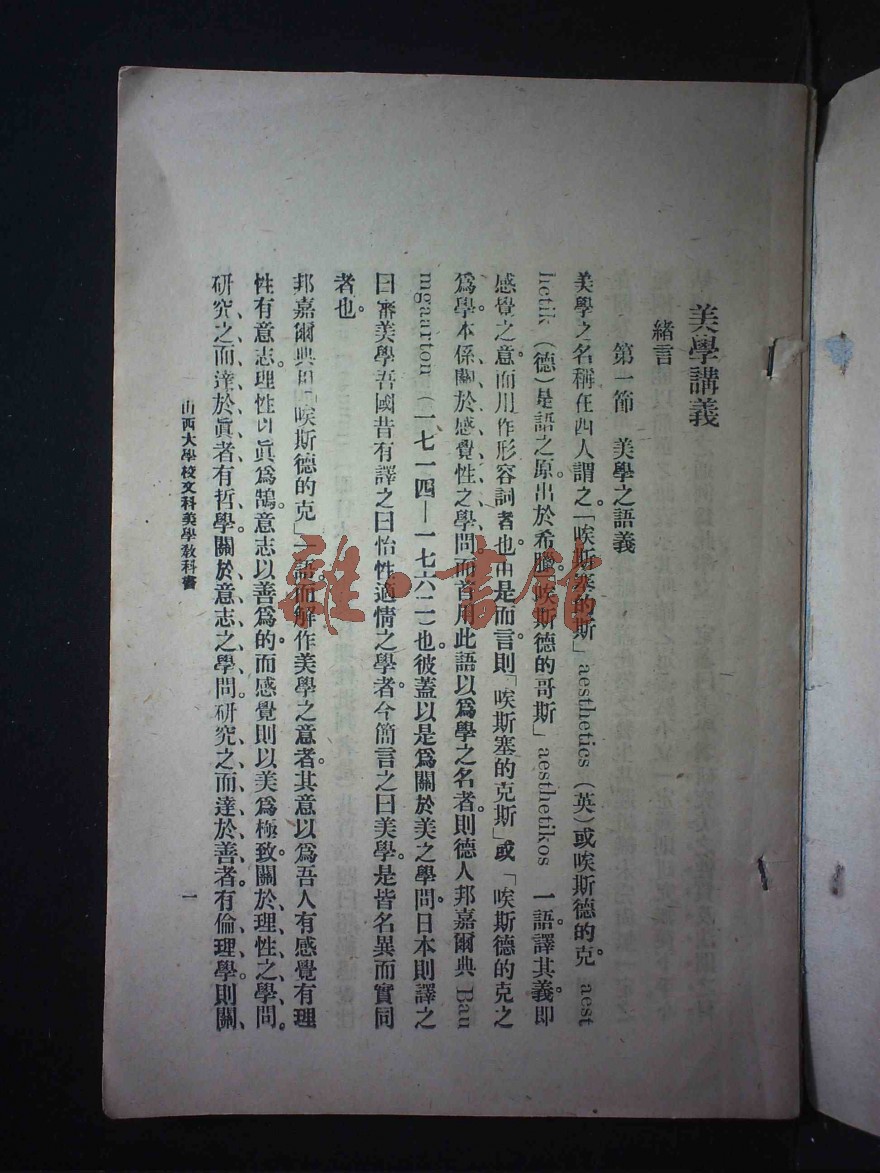 美學講義
緒言
第一節 美學之語義
美學之名稱在西人謂之「唉斯塞的斯」aesthetics（英）或唉斯德的克。aest
hetik（德）是語之原出於希臘。「唉斯德的哥斯」aesthetikos 一語。譯其義。即
感覺之意。而用作形容詞者也。由是而言。則「唉斯塞的克斯」或「唉斯德的克之
爲學。本係關於感覺性之學問。而首用此語以爲學之名者。則德人邦嘉爾典 Bau
mgaarton（一七一四—一七六二）也。彼蓋以是爲關於美之學問。日本則譯之
曰審美學。吾國昔有譯之曰怡性適情之學者。今簡言之曰美學。是皆名異而實同
者也。
邦嘉爾典用「唉斯德的克」一語。而解作美學之意者。其意以爲吾人有感覺有理
性有意志。理性以眞爲鵠。意志以善爲的。而感覺則以美爲極致。關於理性之學問。
研究之而達於眞者有哲學。關於意志之學問。研究之而達於善者有倫理學。則關
山西大學校文科美學教科書
一
雜·書館